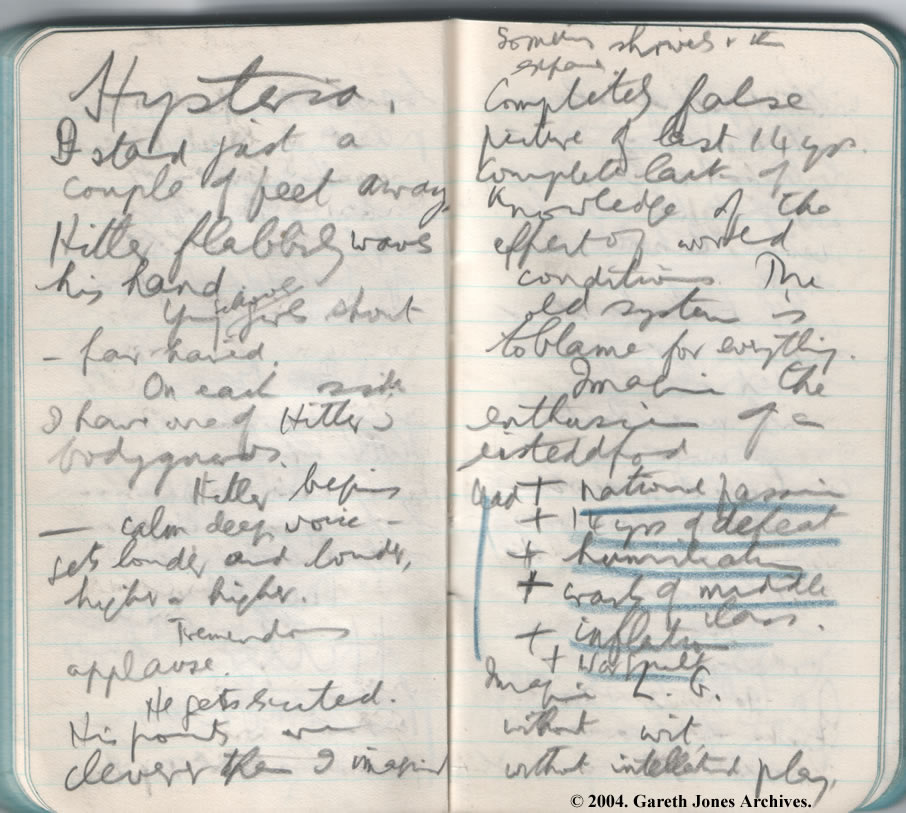 Hysteria.
I stand just a
couple of feet away.
Hitler flabbily waves
his hand
Young girls shout
- fair haired.
On each side
I have one of Hitler's
bodyguards.
Hitler begins
- calm deep voice -
gets louder and louder,
higher & higher.
Tremendous
applause.
He gets excited.
His points are
cleverer than I imagined
shrieks & the
Completely false
picture of last 14 yrs.
Complete lack of
knowledge of the
effect of world
conditions. The
old system is
to blame for everything.
Imagine the
enthusiasm of a
eisteddfod
and + national passion
+ 14 yrs of defeat
+ humiliation
+ crash of middle
class.
+ inflation
+ War guilt
Imagine L. G.
without wit
without intellectual play,
© 2004. Gareth Jones Archives.